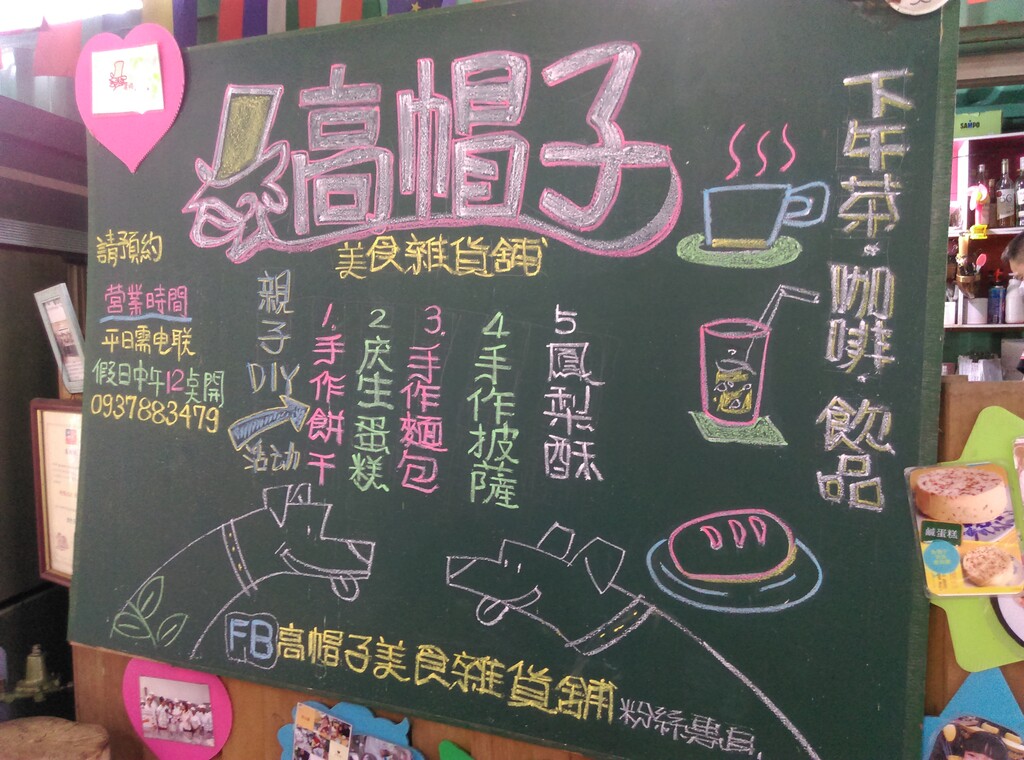 高帽子
美食雜貨舖
請預約
營業時間
平日需电联
假日中午12点開
0937883479
親子DIY活动
1.手作餅干
2庆生蛋糕
3.手作麵包
4手作披薩
5鳳梨酥
下午茶·咖啡·飲品
FB高帽子美食雜貨舖粉絲專頁
SAMPO
鹹蛋糕